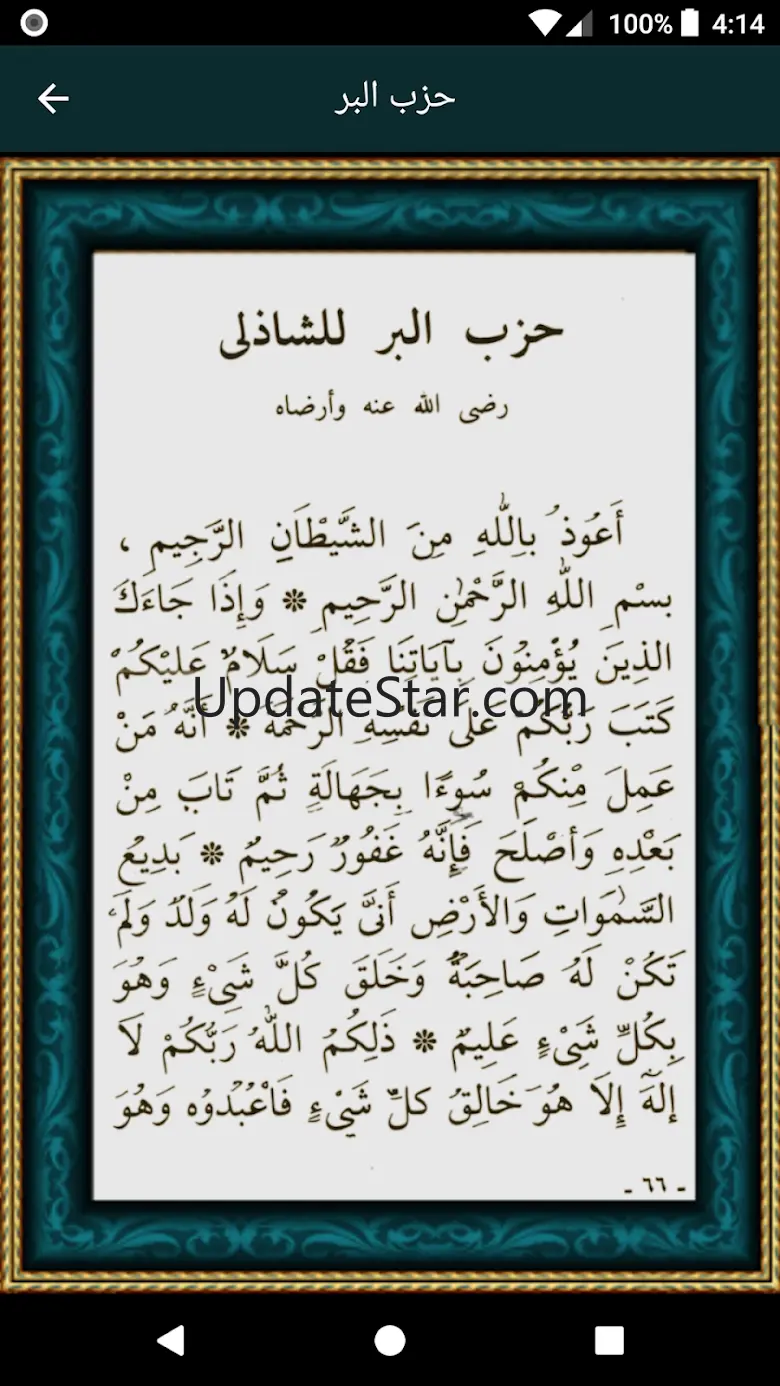 100% 4:14
حزب البر
حزب البر للشاذلى
رضى الله عنه وأرضاه
أَعُوذُ بِاللَّهِ مِنَ الشَّيْطَانِ الرَّجِيمِ ،
بِسْمِ اللَّهِ الرَّحْمٰنِ الرَّحِيمِ ❋ وَإِذَا جَاءَكَ
الذِينَ يُؤْمِنُونَ بِآيَاتِنَا فَقُلْ سَلَامٌ عَلَيْكُمْ
UpdateStar.com
كَتَبَ رَبُّكُمْ عَلَى نَفْسِهِ الرَّحْمَةَ ❋ أَنَّهُ مَنْ
عَمِلَ مِنْكُمْ سُوءًا بِجَهَالَةٍ ثُمَّ تَابَ مِنْ
بَعْدِهِ وَأَصْلَحَ فَإِنَّهُ غَفُورٌ رَحِيمٌ ❋ بَدِيعُ
السَّمٰوَاتِ وَالأَرْضِ أَنَّى يَكُونُ لَهُ وَلَدٌ وَلَمْ
تَكُنْ لَهُ صَاحِبَةٌ وَخَلَقَ كُلَّ شَىْءٍ وَهُوَ
بِكُلِّ شَىْءٍ عَلِيمٌ ❋ ذَلِكُمُ اللَّهُ رَبُّكُمْ لَا
إِلهَ إِلَا هُوَ خَالِقُ كلِّ شَىْءٍ فَاعْبُدُوه وَهُوَ
ـ ٦٦ ـ